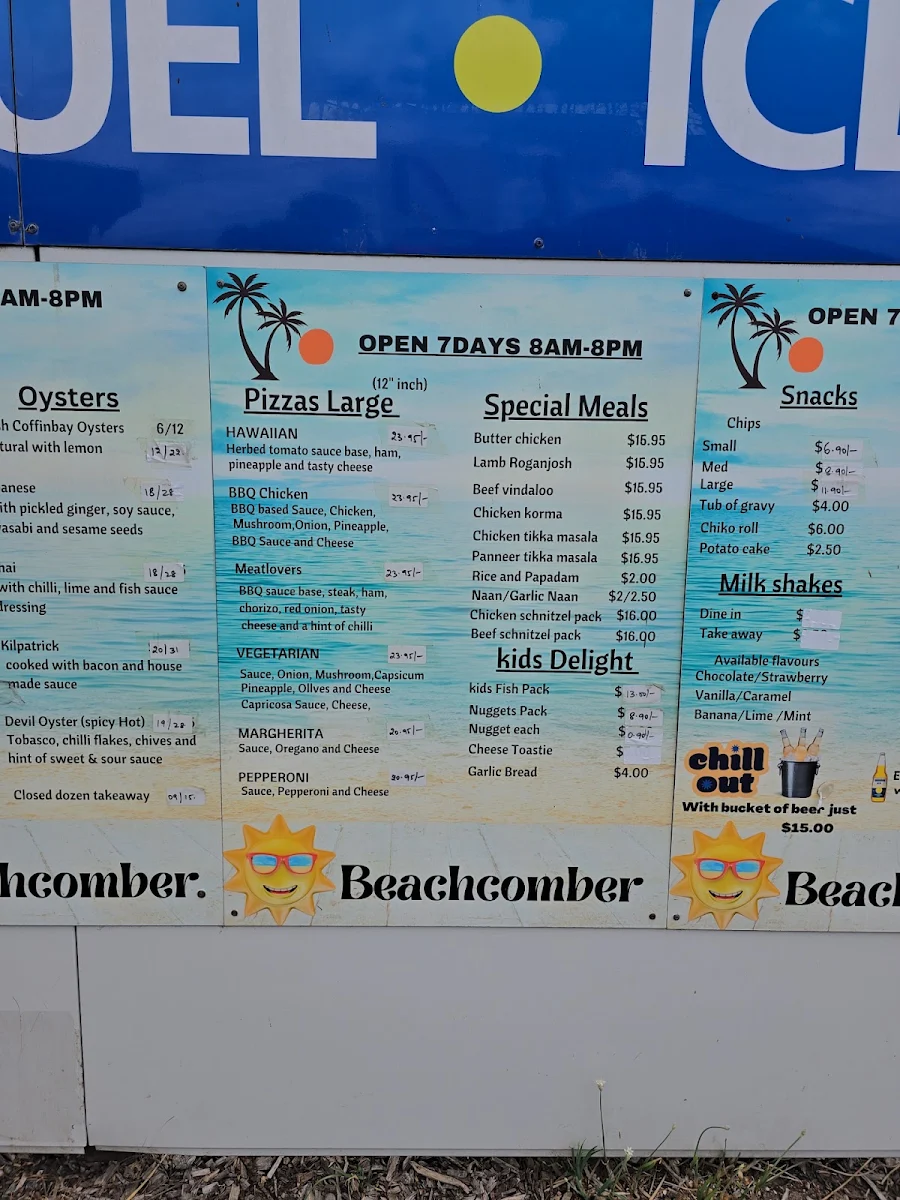 UEL • ICE
AM-8PM
Oysters
sh Coffinbay Oysters 6/12
tural with lemon 12/22
anese 18/28
ith pickled ginger, soy sauce,
wasabi and sesame seeds
hai 18/28
with chilli, lime and fish sauce
dressing
Kilpatrick 20/31
cooked with bacon and house
made sauce
Devil Oyster (spicy Hot) 19/28
Tobasco, chilli flakes, chives and
hint of sweet & sour sauce
Closed dozen takeaway 09/15
hcomber.
OPEN 7DAYS 8AM-8PM
(12" inch)
Pizzas Large
HAWAIIAN 23.95/-
Herbed tomato sauce base, ham,
pineapple and tasty cheese
BBQ Chicken 23.95/-
BBQ based Sauce, Chicken,
Mushroom,Onion, Pineapple,
BBQ Sauce and Cheese
Meatlovers 23.95/-
BBQ sauce base, steak, ham,
chorizo, red onion, tasty
cheese and a hint of chilli
VEGETARIAN 23.95/-
Sauce, Onion, Mushroom,Capsicum
Pineapple, Ollves and Cheese
Capricosa Sauce, Cheese,
MARGHERITA 20.95/-
Sauce, Oregano and Cheese
PEPPERONI 20.95/-
Sauce, Pepperoni and Cheese
Special Meals
Butter chicken $16.95
Lamb Roganjosh $16.95
Beef vindaloo $16.95
Chicken korma $16.95
Chicken tikka masala $16.95
Panneer tikka masala $16.95
Rice and Papadam $2.00
Naan/Garlic Naan $2/2.50
Chicken schnitzel pack $16.00
Beef schnitzel pack $16.00
kids Delight
kids Fish Pack $13.50/-
Nuggets Pack $8.90/-
Nugget each $0.90/-
Cheese Toastie $
Garlic Bread $4.00
Beachcomber
OPEN 7
Snacks
Chips
Small $6.90/-
Med $8.90/-
Large $11.90/-
Tub of gravy $4.00
Chiko roll $6.00
Potato cake $2.50
Milk shakes
Dine in $
Take away $
Available flavours
Chocolate/Strawberry
Vanilla/Caramel
Banana/Lime /Mint
chill
out
With bucket of beer just
$15.00
Beac